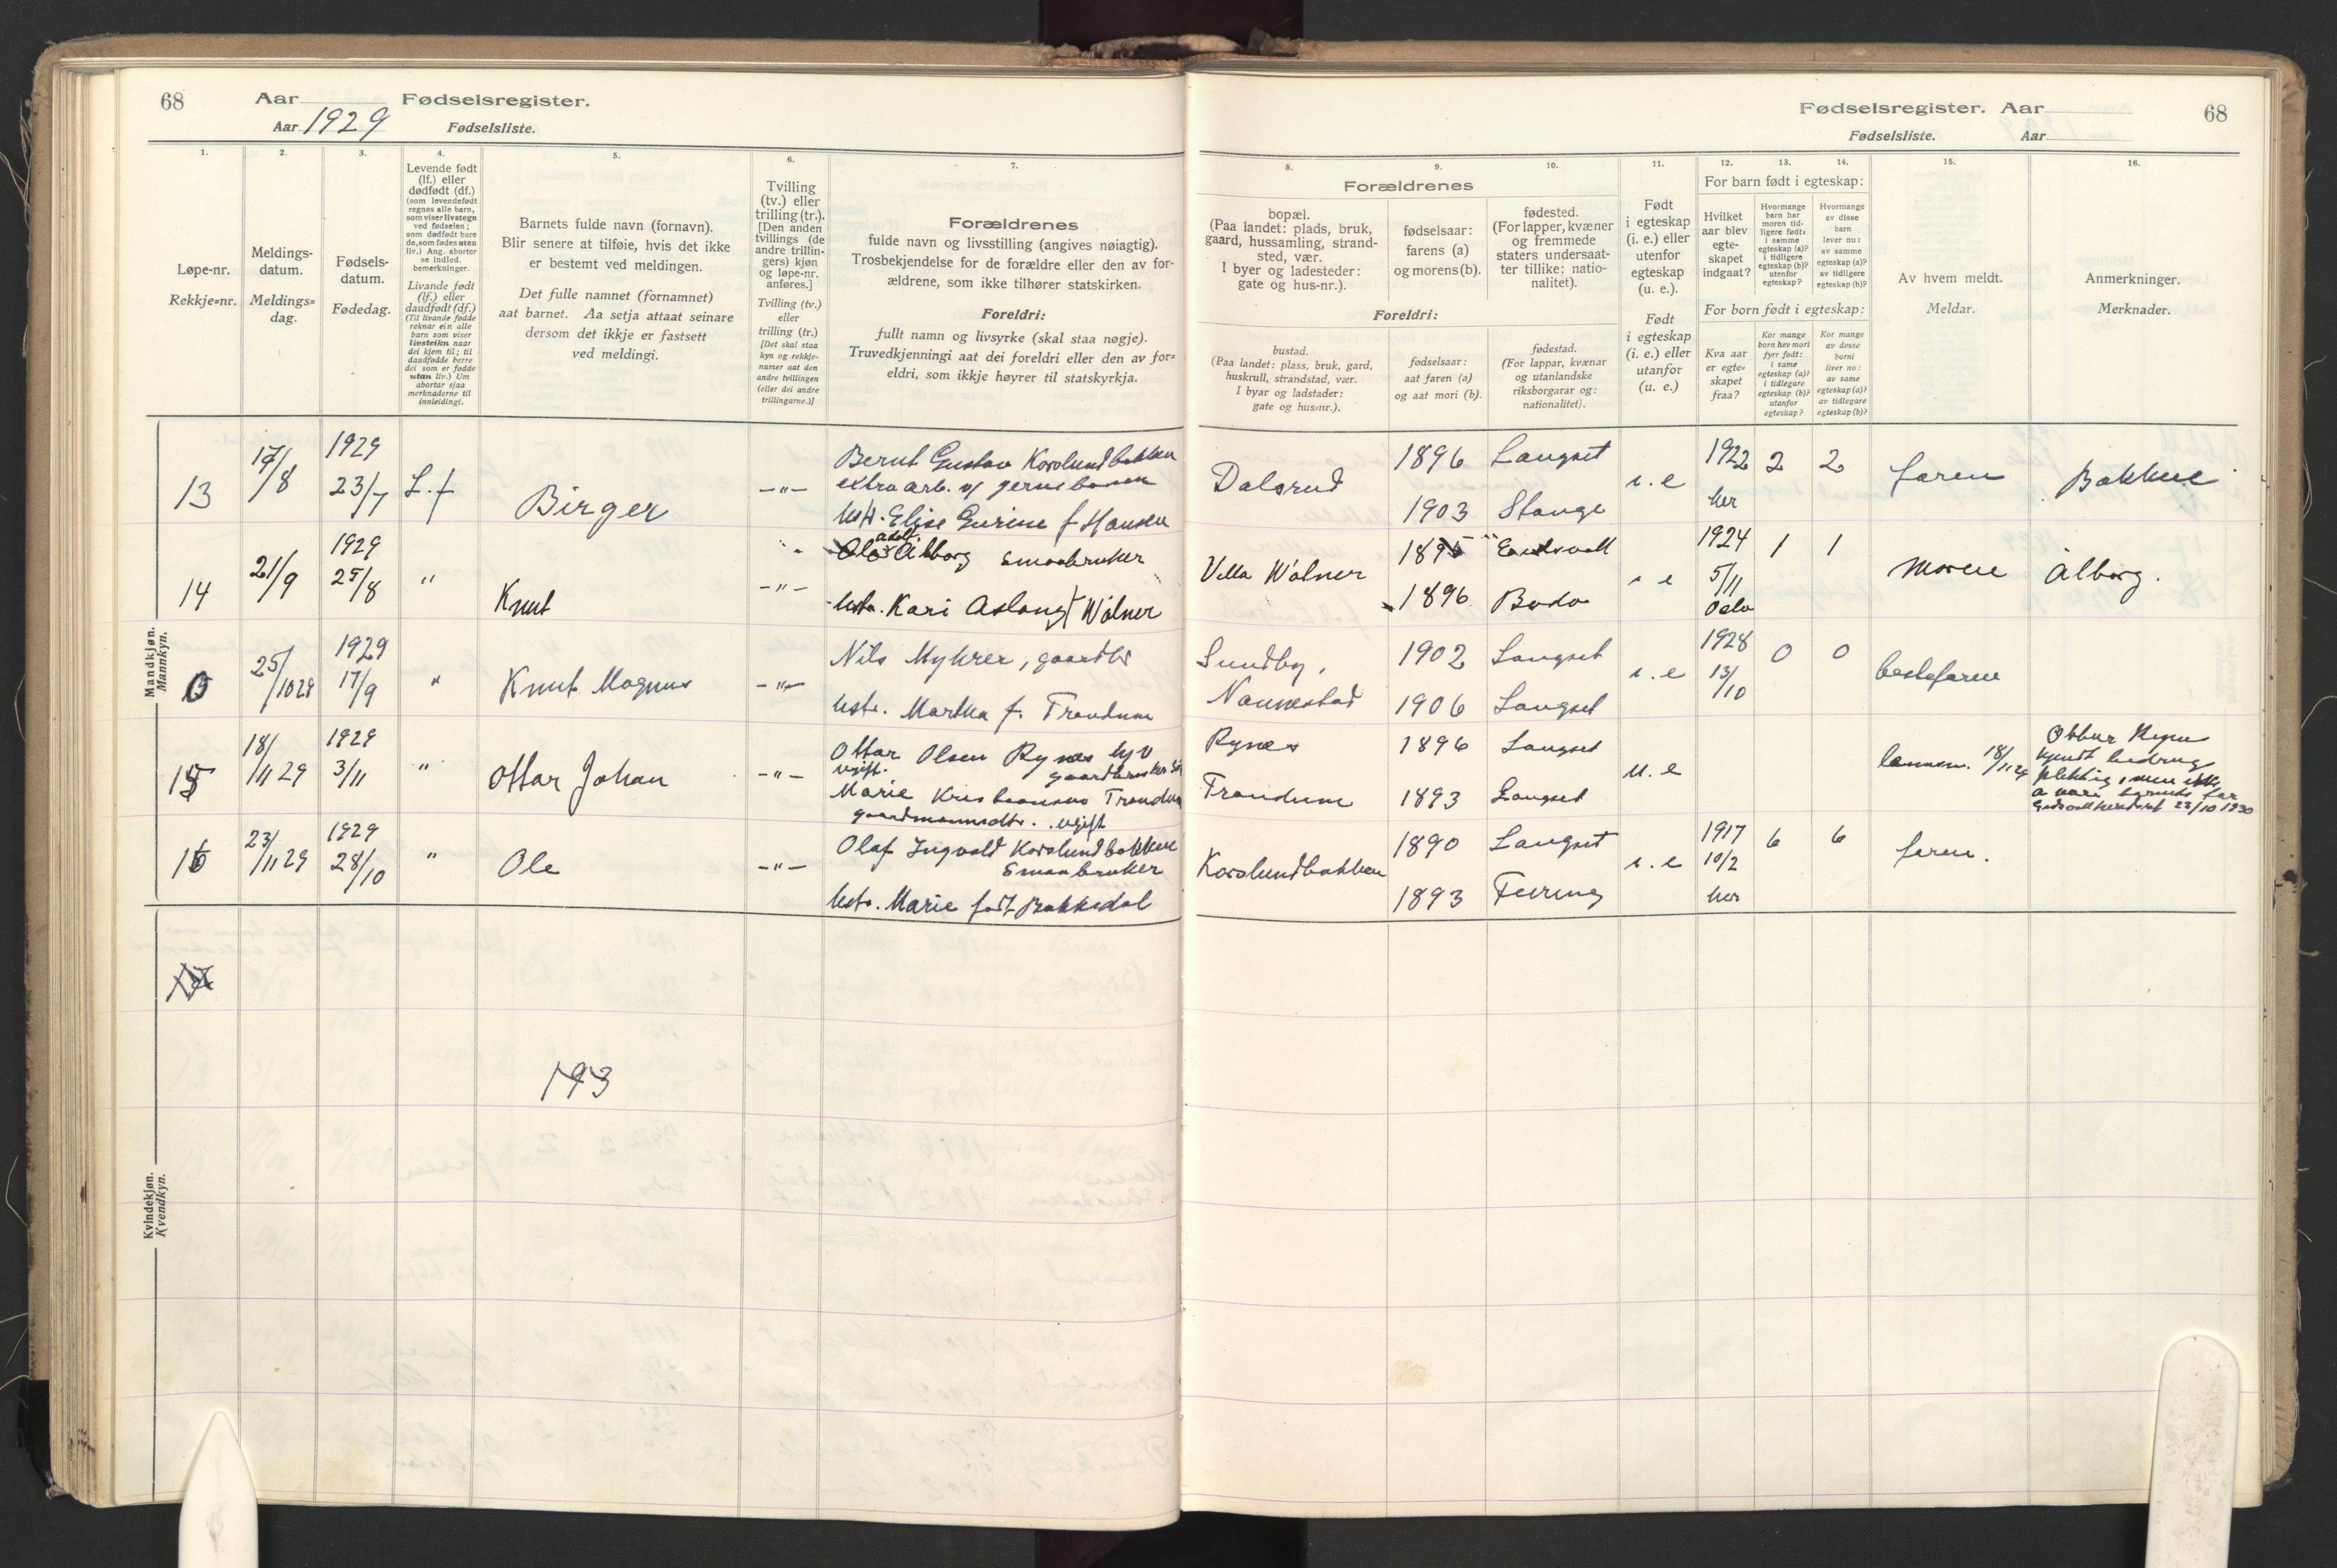 68 Aar Fødselsregister.
Aar 1929 Fødselsliste.
1.
Løpe-nr.
Rekkje=nr.
2.
Meldings-
datum.
Meldings=
dag.
3.
Fødsels-
datum.
Fødedag.
4.
Levende født
(lf.) eller
dødfødt (df.)
(som levendefødt
regnes alle barn,
som viser livstegn
ved fødselen;
som dødfødt bare
de, som fødes uten
liv.) Ang. aborter
se indled.
bemerkninger.
Livande født
(lf.) eller
daudfødt (df.)
(Til livande fødde
reknar ein alle
barn som viser
livsteikn naar
dei kjem til; til
daudfødde berre
dei som er fødde
utan liv.) Um
abortar sjaa
merknaderne til
innleidingi.
5.
Barnets fulde navn (fornavn).
Blir senere at tilføie, hvis det ikke
er bestemt ved meldingen.
Det fulle namnet (fornamnet)
aat barnet. Aa setja attaat seinare
dersom det ikkje er fastsett
ved meldingi.
6.
Tvilling
(tv.) eller
trilling (tr.).
[Den anden
tvillings (de
andre trillin-
gers) kjøn
og løpe-nr.
anføres.]
Tvilling (tv.)
eller
trilling (tr.)
[Det skal staa
kyn og rekkje-
numer aat den
andre tvillingen
(eller dei andre
trillingarne.)]
7.
Forældrenes
fulde navn og livsstilling (angives nøiagtig).
Trosbekjendelse for de forældre eller den av for-
ældrene, som ikke tilhører statskirken.
Foreldri:
fullt namn og livsyrke (skal staa nøgje).
Truvedkjenningi aat dei foreldri eller den av for=
eldri, som ikkje høyrer til statskyrkja.
Mandkjøn.
Mannkyn.
13 17/8 1929 23/7 L.f Birger —"—
Bernt Gustav Korslundbakken
extraarb. v/ jernbanen
hst. Elise Gurine f Hansen
14 21/9 1929 25/8 " Knut —"—
Adolf
Ålborg smaabruker
hstr. Kari Aslaug f Wølner
25/10 29 1929 17/9 " Knut Magnus —"—
Nils Myhrer, gaardbr
hstr. Martha f. Trandum
15 18/11 29 1929 3/11 " Ottar Johan —"—
Ottar Olsen Rynes
ugift.
Marie Kristiansen Trandum
ugift
16 23/11 29 1929 28/10 " Ole —"—
Olaf Ingvald Korslundbakken
Smaabruker
hstr. Marie født Bakkedal
Kvindekjøn.
Kvendkyn.
193
Fødselsregister. Aar 68
Fødselsliste. Aar
8.
Forældrenes
bopæl.
(Paa landet: plads, bruk,
gaard, hussamling, strand-
sted, vær.
I byer og ladesteder:
gate og hus-nr.).
Foreldri:
bustad.
(Paa landet: plass, bruk, gard,
huskrull, strandstad, vær.
I byar og ladstader:
gate og hus=nr.).
9.
fødselsaar:
farens (a)
og morens (b).
fødselsaar:
aat faren (a)
og aat mori (b).
10.
fødested.
(For lapper, kvæner
og fremmede
staters undersaat-
ter tillike: natio-
nalitet).
fødestad.
(For lappar, kvænar
og utanlandske
riksborgarar og:
nationalitet).
11.
Født
i egteskap
(i. e.) eller
utenfor
egteskap
(u. e.).
Født
i egteskap
(i. e.) eller
utanfor
(u. e.)
12.
For barn født i egteskap:
Hvilket
aar blev
egte-
skapet
indgaat?
For born født i egteskap:
Kva aar
er egte=
skapet
fraa?
13.
Hvormange
barn har
moren tid-
ligere født:
i samme
egteskap (a)?
i tidligere
egteskap (b)?
utenfor
egteskap?
Kor mange
born hev mori
fyrr født:
i same
egteskap (a)?
i tidlegare
egteskap (b)?
utanfor
egteskap?
14.
Hvormange
av disse
barn
lever nu:
av samme
egteskap (a)?
av tidligere
egteskap (b)?
Kor mange
av desse
borni
liver no:
av same
egteskap (a)?
av tidlegare
egteskap (b)?
15.
Av hvem meldt.
Meldar.
16.
Anmerkninger.
Merknader.
Dalsrud 1896 Langset i. e 1922 2 2 faren Bakkene
1903 Stange her
Villa Wølner Eidsvoll i e 1924 1 1 Moren Ålborg.
1896 Bodø 5/11 Oslo
Sundby, 1902 Langset i. e 1928 0 0 bestefaren
Nannestad 1906 Langset 13/10
Rynes 1896 Langset u. e 18/11 29
Trandum 1893 Langset
kjendt bidrags
pliktig, men ikke
å være barnets far
22/10 1930
Korslundbakken 1890 Langset i. e 1917 6 6 faren.
1893 Feiring 10/2 her